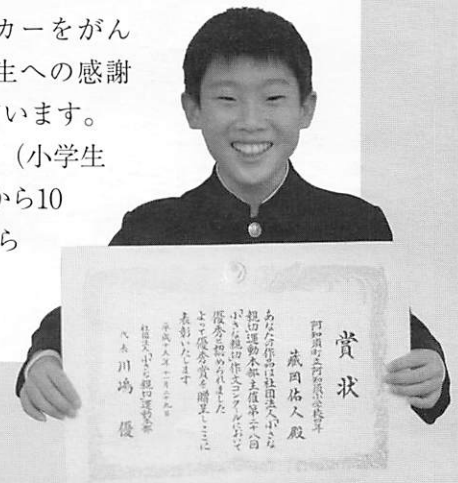 カーをがん
生への感謝
います。
(小学生
から10
ら
賞状
阿知須町立阿知須小学校四年
蔵岡佑人殿
あなたの作品は社団法人「小さな
親切」運動本部主催第二十八回
「小さな親切」作文コンクールにおいて
優秀と認められました
よって優秀賞を贈呈しここに
表彰いたします
平成十五年十一月二十九日
社団法人「小さな親切」運動本部
代表 川嶋 優